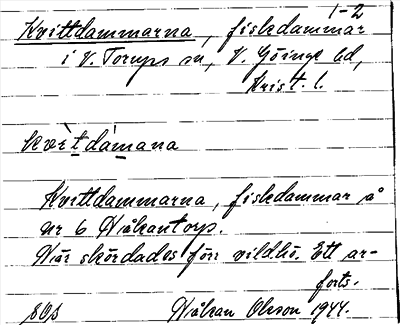 1-2
Kvittdammarna, fiskdammar
i V. Torups sn, V. Göinge hd,
Krist. l.
kvìtdámana
Kvittdammarna, fiskdammar å
nr 6 Nåkantorp.
När skördades förr vildhö. Ett ar-
forts.
Håkan Olsson 1944.